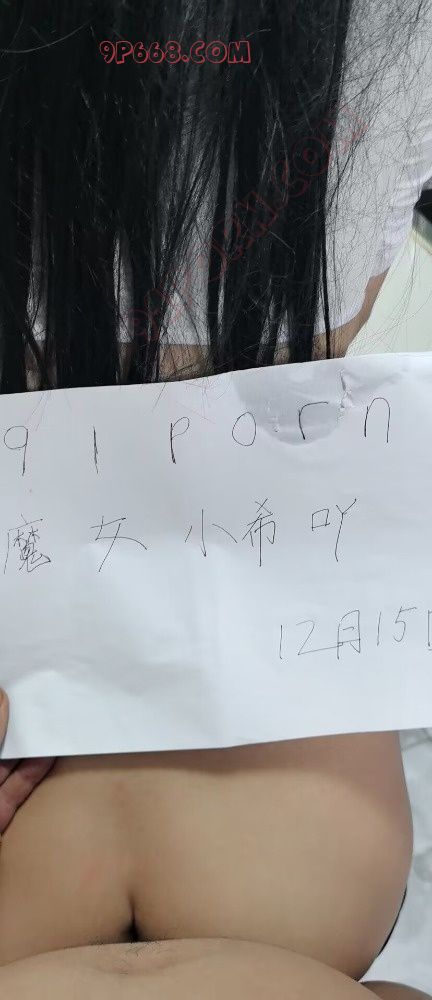 9P668.COM
91porn
魔女小希吖
12月15日